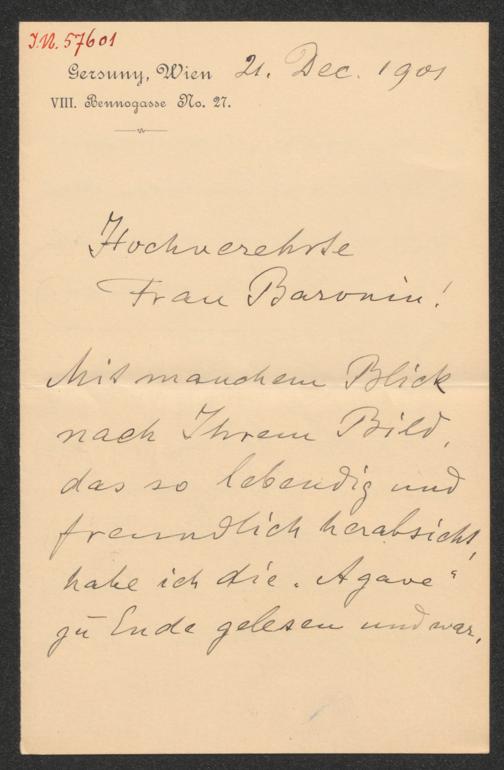 I.N. 57601
Gersuny, Wien
VIII. Bennogasse No. 27.
21. Dec. 1901
Hochverehrte
Frau Baronin!
Mit manchem Blick
nach Ihrem Bild,
das so lebendig und
freundlich herabsieht,
habe ich die „Agave“
zu Ende gelesen und war,